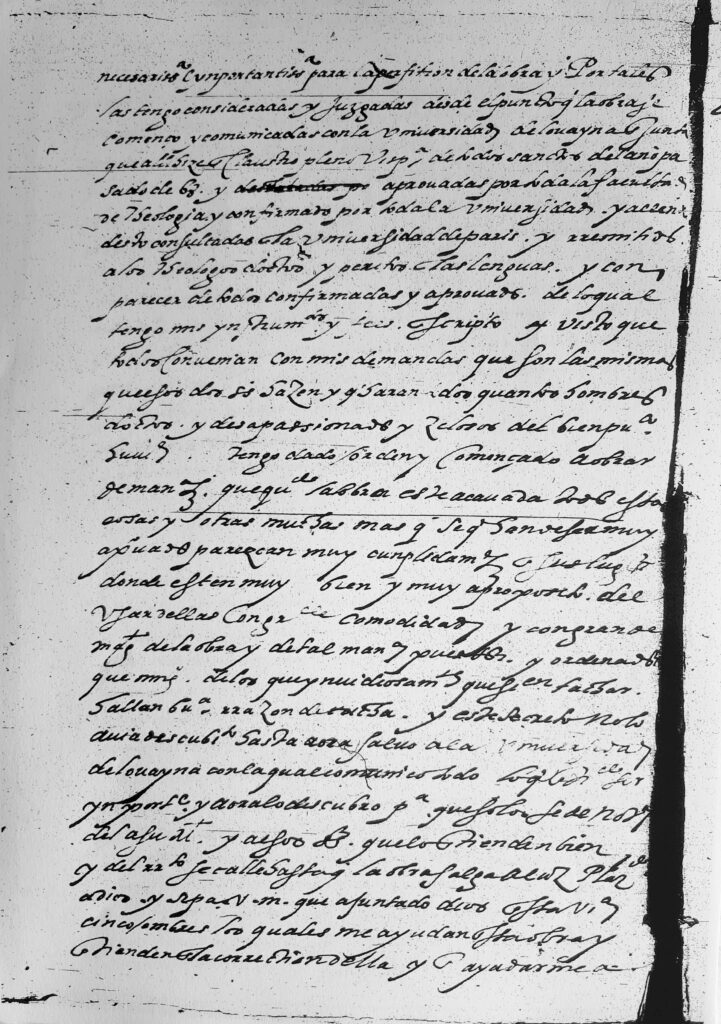 necesarias e ynportantis.ª para la perfition de la obra y Por tales
las tengo consideradas y Juzgadas desde el punto q la obra se
Començo y comunicadas con la Universidad de lovayna
que alli hize Claustro pleno de todos sanctos del año pa
sado de 68. y aprovadas por toda la facultad
de theologia y confirmado por toda la Universidad. y
desto consultadas la Universidad de paris. y rremitidas
a los theologos doctos y peritos las lenguas. y con
parecer de todos confirmadas y aprovads. de lo qual
tengo mis y tes. scripto y visto que
todos Convenian con mis demandas que son las mismas
que esos dos ss hazen y q haran todos quantos hombres
doctos. y desapasionads y zelosos del bien pu.co
tengo dado horden y Començado a obrar
de man.ª que qu.do la obra este acavada todas estas
cosas y otras muchas mas q se q han de ser muy
parezcan muy cunplidam.te su lug.r
donde esten muy bien y muy a proposito. del
Usar dellas Con gr.de comodidad y con grande
mag.t de la obra y de tal man.ª puestas. y ordenads
que de los que ynvidiosam.te quisieren tachar.
hallan rrazon de tacha. y este secreto No lo
avia descubi.to hasta aora salvo a la Universidad
de lovayna con la qual comunico todo lo q ser
ynport.e y aora lo descubro p.ª que solo se de No.ª
del a su M.t y a esos ss. que lo entienden bien
y del rr.to se calle hasta q la obra salga a luz
a dios. y sepa v.m. que a juntado dios esta V.ª
cinco honbres los quales me ayudan esta obra y
entienden la correction della y ayudarme a